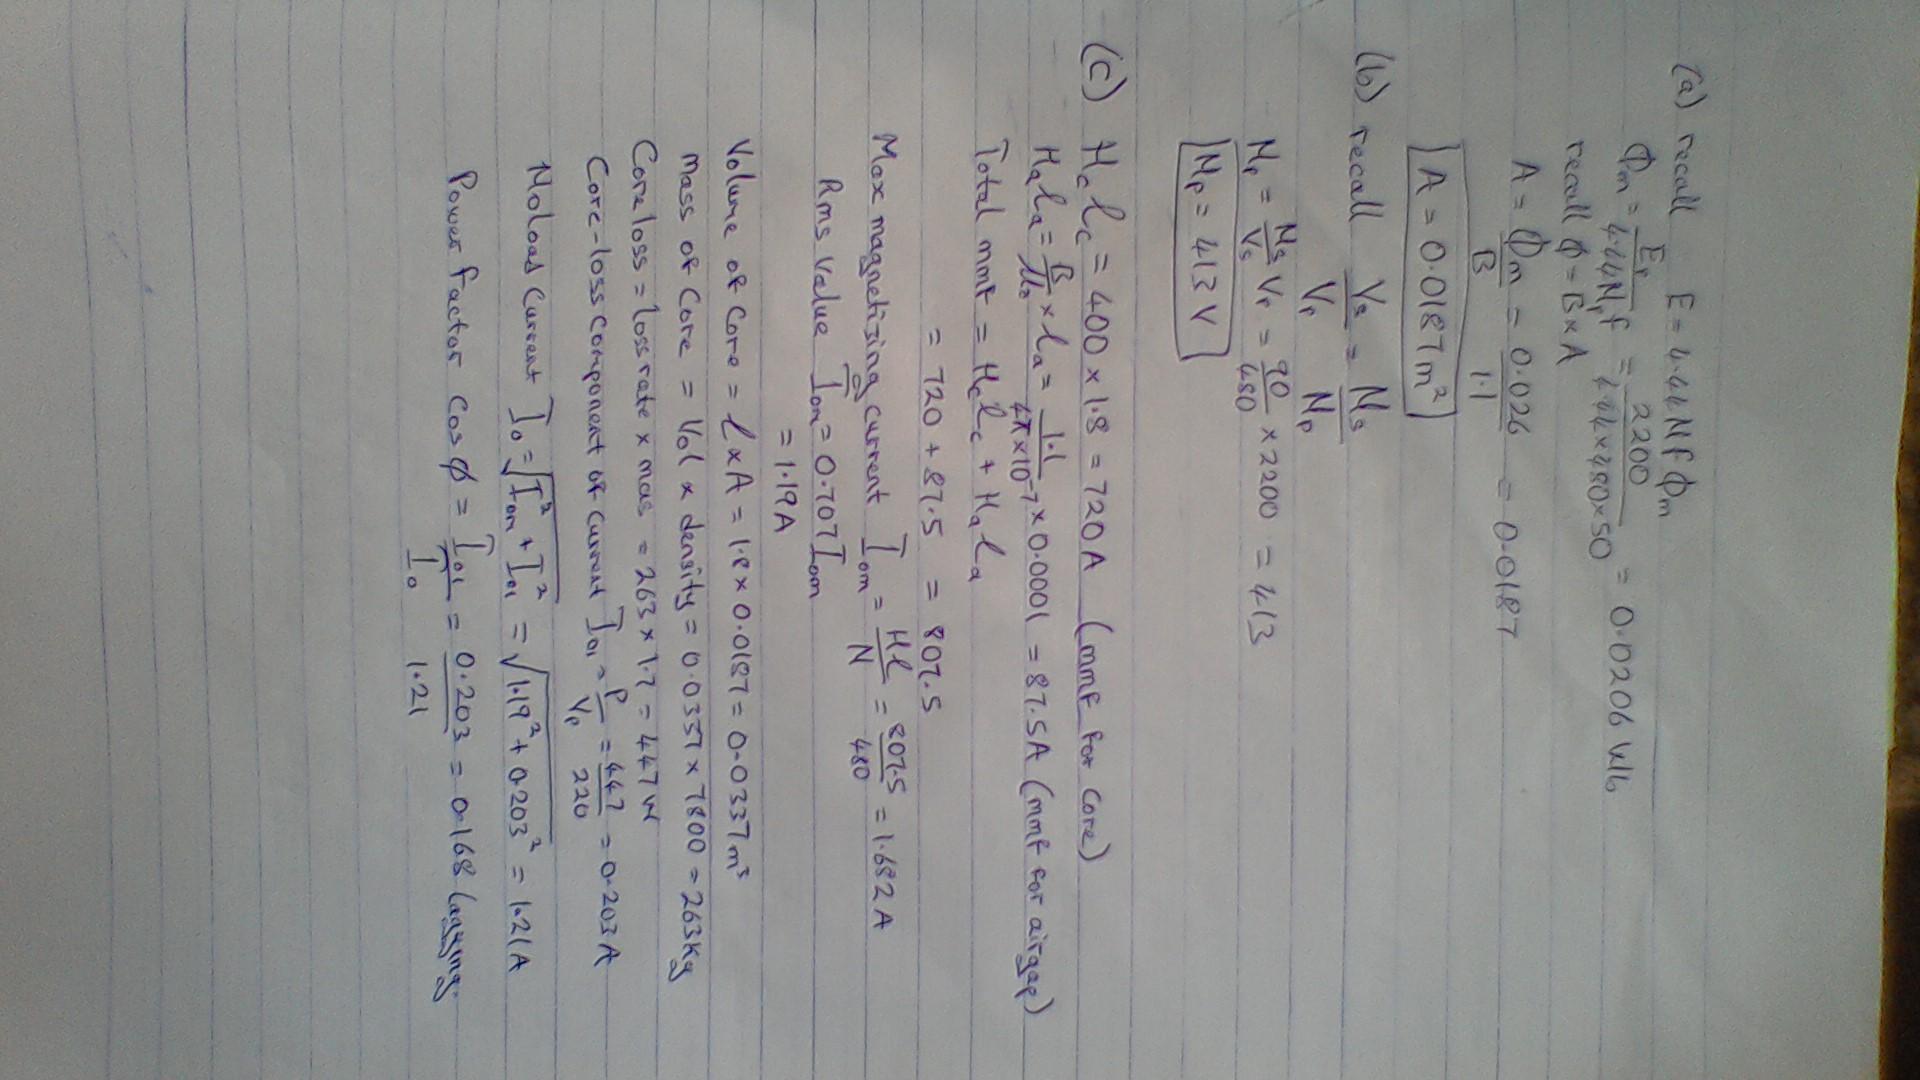 (a) recall E = 4.44 N f Φm
Φm = Ep / 4.44Np f = 2200 / 4.44×480×50 = 0.0206 Wb
recall φ = B×A
A = Φm / B = 0.026 / 1.1 = 0.0187
A = 0.0187m²
(b) recall Vs / Vp = Ns / Np
Np = Ns / Vs Vp = 90 / 480 × 2200 = 413
Np = 413 V
(c) Hc lc = 400 × 1.8 = 720A (mmf for core)
Ha la = B / μo × la = 1.1 / 4π×10⁻⁷ × 0.0001 = 87.5A (mmf for airgap)
Total mmf = Hc lc + Ha la
= 720 + 87.5 = 807.5
Max magnetising current Iom = Hl / N = 807.5 / 480 = 1.682A
Rms value Iom = 0.707 Iom
= 1.19A
Volume of core = l×A = 1.8 × 0.0187 = 0.0337m³
mass of core = Vol × density = 0.0337 × 7800 = 263Kg
Core loss = loss rate × mas = 263 × 1.7 = 447W
Core-loss component of current Io1 = P / Vp = 447 / 220 = 0.203A
No load current Io = √Iom² + Io1² = √1.19² + 0.203² = 1.21A
Power factor Cos φ = Io1 / Io = 0.203 / 1.21 = 0.168 lagging.